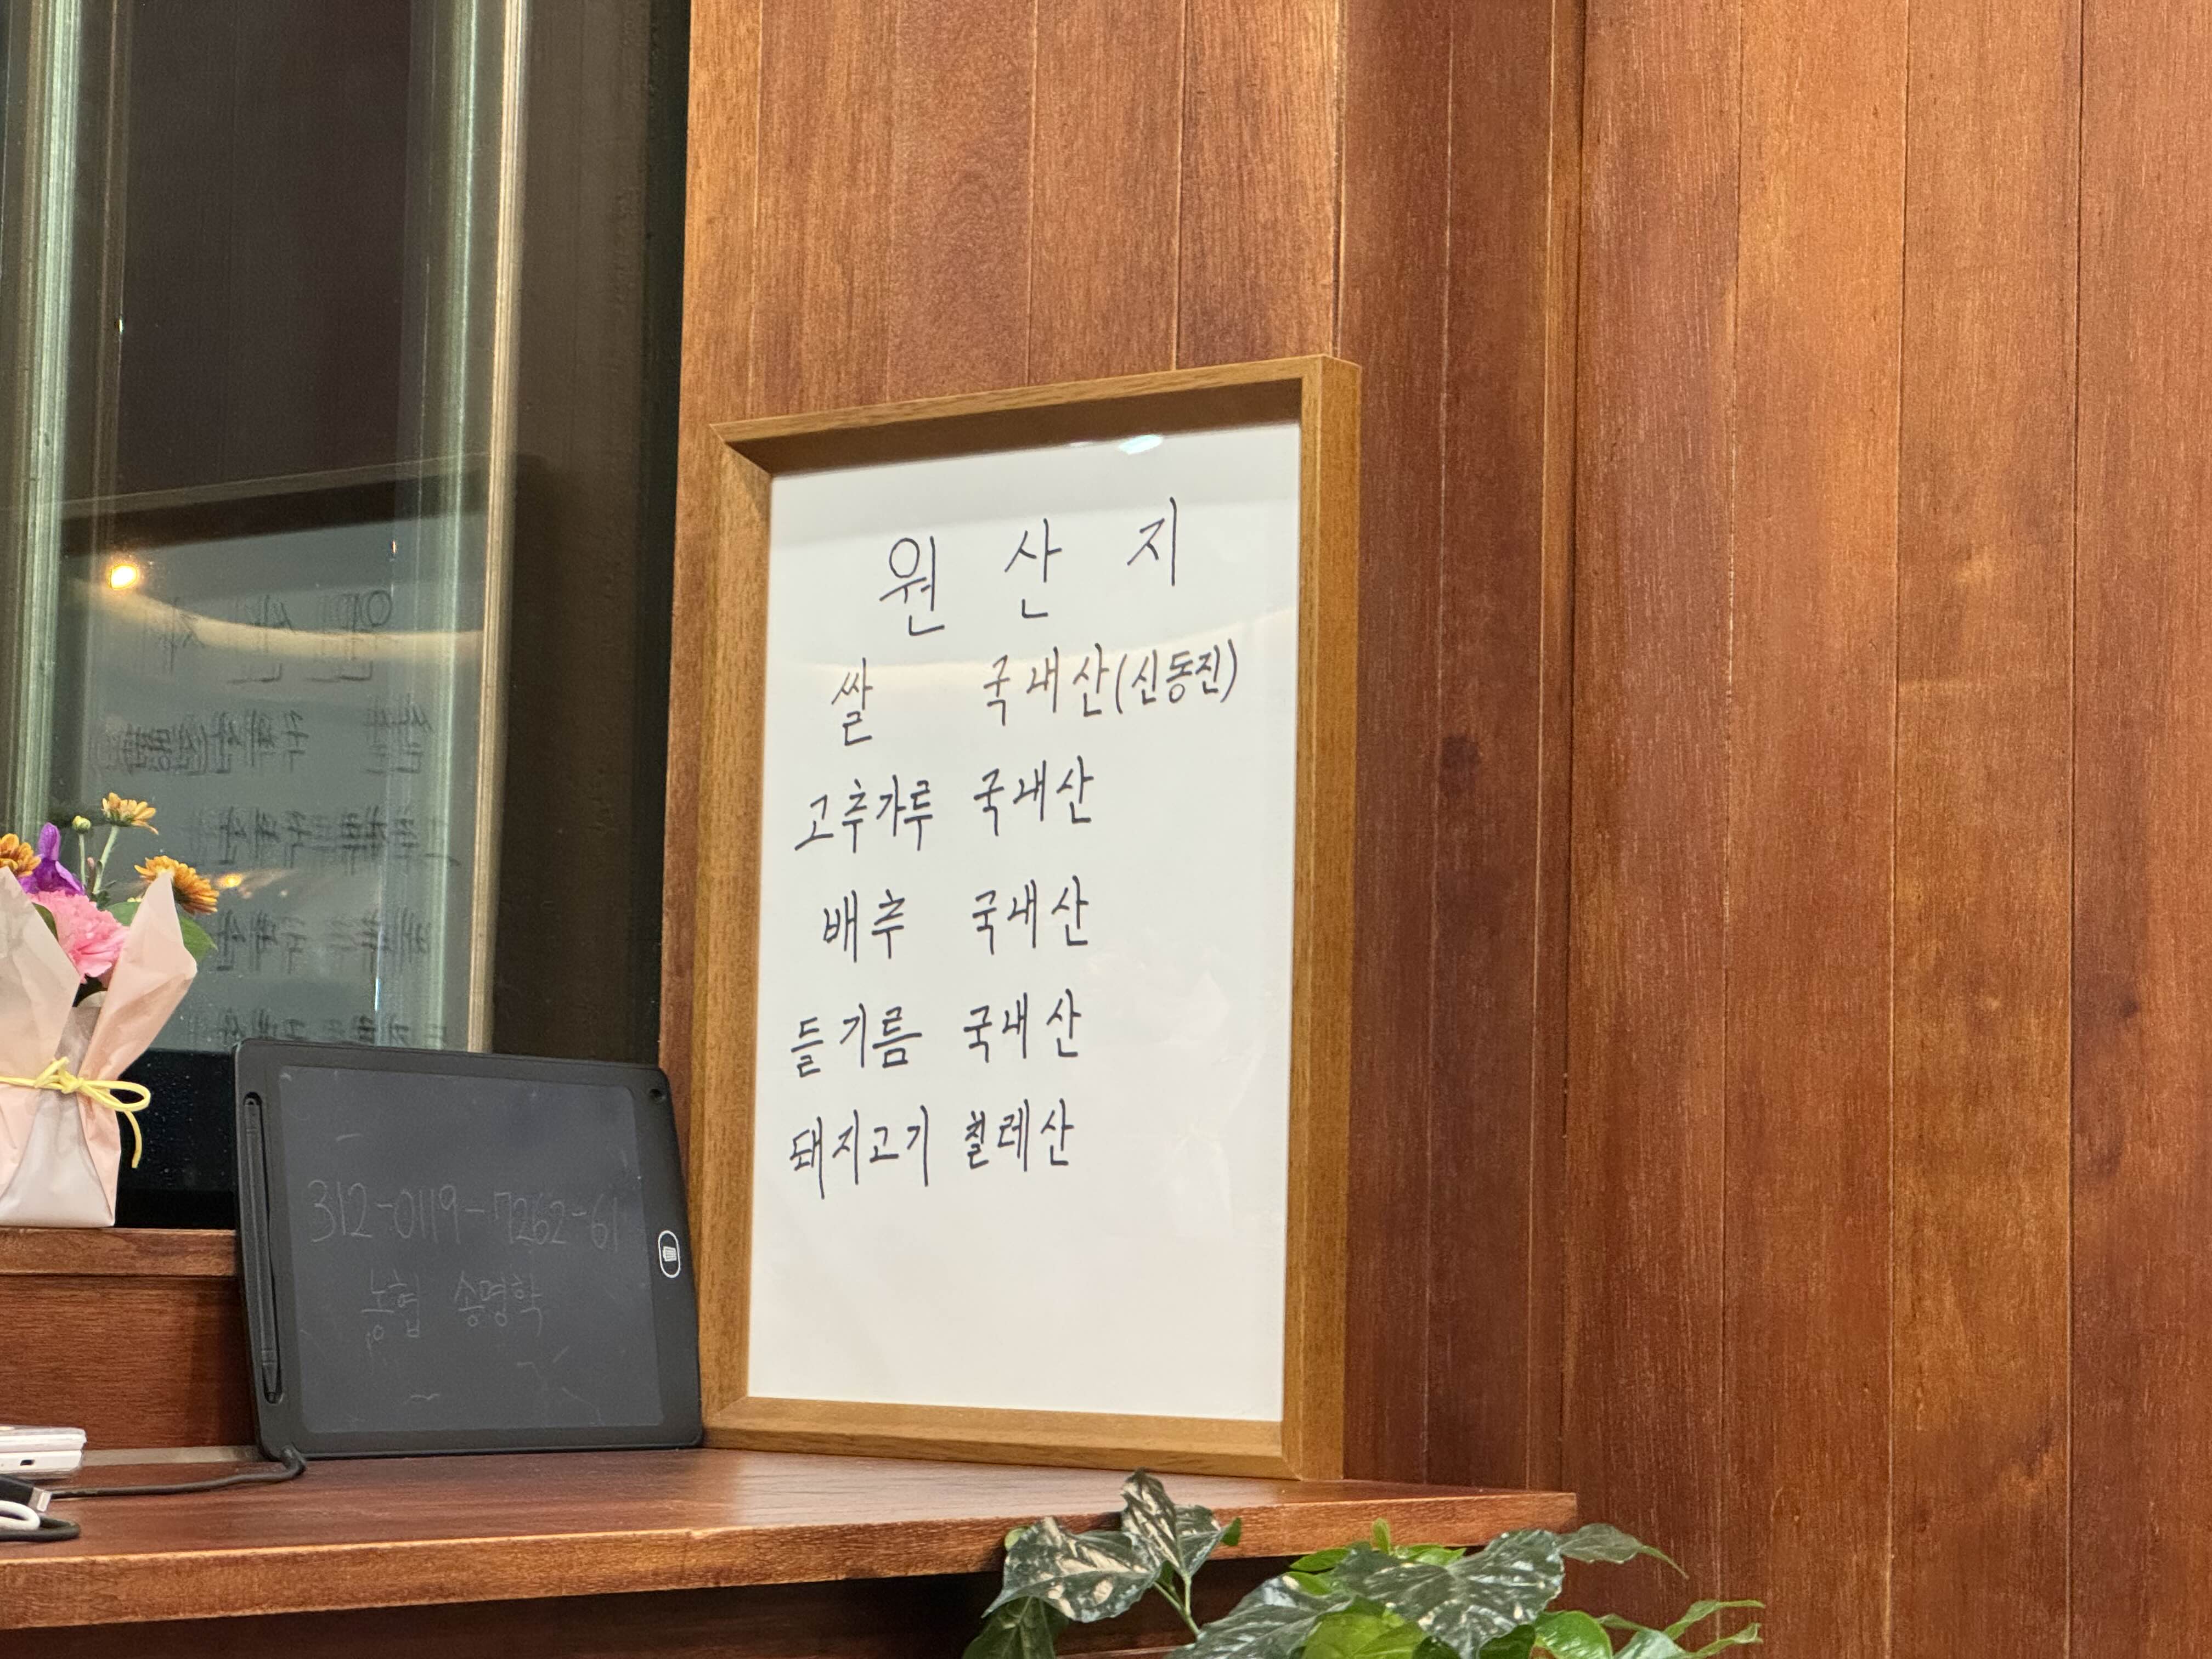 원산지
쌀 국내산(신동진)
고추가루 국내산
배추 국내산
들기름 국내산
돼지고기 칠레산
312-0119-7262-61
농협 송명학